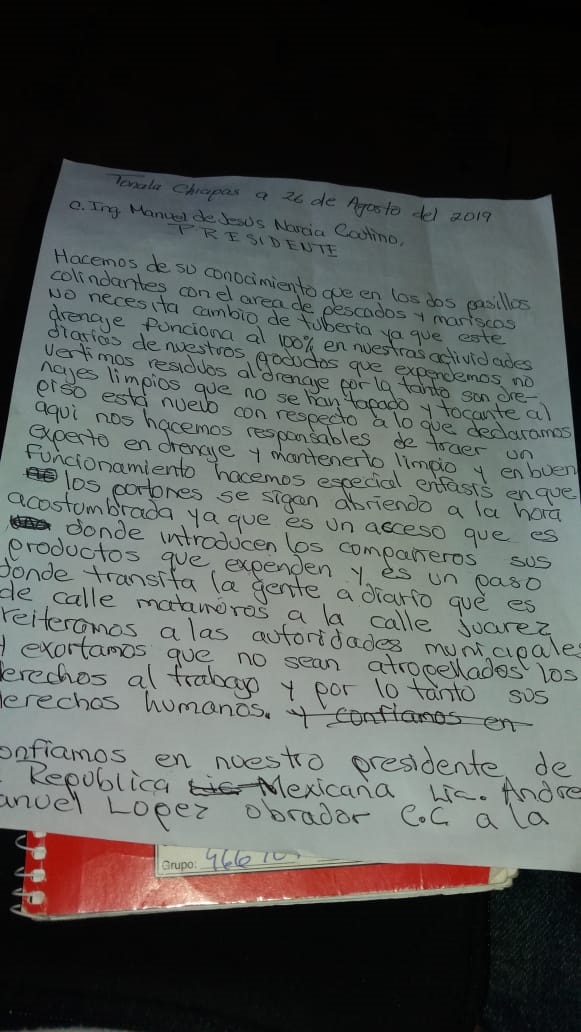 Tonala Chiapas a 26 de Agosto del 2019
C. Ing. Manuel de Jesus Narcia Coutino,
PRESIDENTE
Hacemos de su conocimiento que en los dos pasillos
colindantes con el area de pescados y mariscos
NO necesita cambio de tuberia ya que este
drenaje funciona al 100% en nuestras actividades
diarias de nuestros productos que expendemos, no
vertimos residuos al drenaje por lo tanto son dre-
najes limpios que no se han tapado y tocante al
piso está nuevo con respecto a lo que declaramos
aqui nos hacemos responsables de traer un
experto en drenaje y mantenerlo limpio y en buen
Funcionamiento hacemos especial enfasis en que
los portones se sigan abriendo a la hora
acostumbrada ya que es un acceso que es
donde introducen los compañeros sus
productos que expenden y es un paso
donde transita la gente a diario que es
de calle matamoros a la calle Juarez
reiteramos a las autoridades municipales
y exortamos que no sean atropellados los
derechos al trabajo y por lo tanto sus
derechos humanos. y confiamos en
onfiamos en nuestro presidente de
Republica Lic Mexicana Lic. Andre
anuel Lopez obrador C.C a la
Grupo: 466